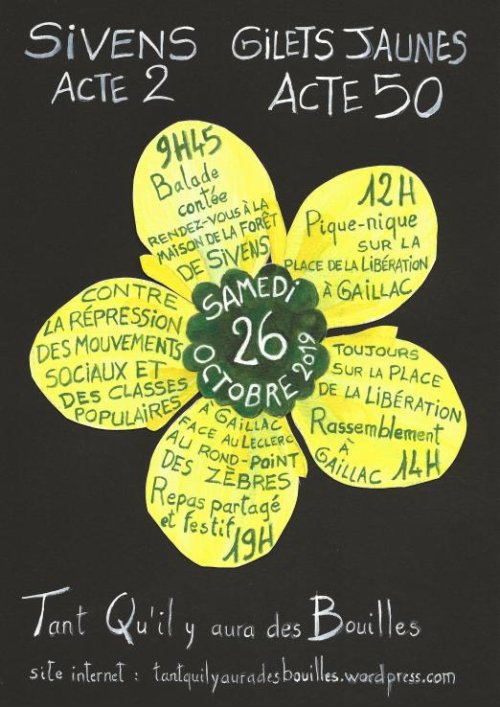 SIVENS
ACTE 2
GILETS JAUNES
ACTE 50
9H45
Balade
contée
RENDEZ-VOUS À LA
MAISON DE LA FORÊT
DE SIVENS
12H
Pique-nique
SUR LA
PLACE DE LA LIBÉRATION
À GAILLAC
TOUJOURS
SUR LA PLACE
DE LA LIBÉRATION
Rassemblement
À
GAILLAC 14H
À GAILLAC
FACE AU LECLERC
AU ROND-POINT
DES ZÈBRES
Repas partagé
et festif
19H
CONTRE
LA RÉPRESSION
DES MOUVEMENTS
SOCIAUX ET
DES CLASSES
POPULAIRES
SAMEDI
26
OCTOBRE 2019
Tant Qu'il y aura des Bouilles
site internet : tantquilyauradesbouilles.wordpress.com